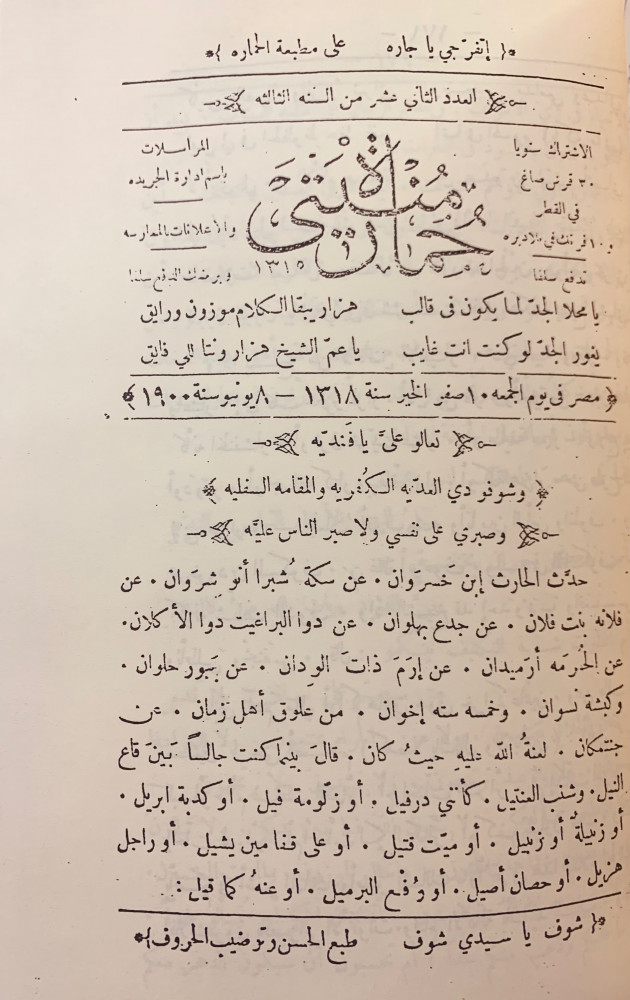 إتفرّجي يا جاره على مطبعة الحماره
العدد الثاني عشر من السنه الثالثه
الاشتراك سنويا
٣٠ قرش صاغ
في القطر
و١٠ فرنك في بلاد بره
تدفع سلفا
حمارة منيتي
١٣١٥
المراسلات
باسم ادارة الجريده
والاعلانات بالمعارسه
وبرضك الدفع سلفا
يا محلا الجدّ لما يكون فى قالب هزار يبقا الكلام موزون ورايق
يغور الجدّ لو كنت انت غايب يا عمّ الشيخ هزار ونتا للي فايق
مصر فى يوم الجمعه ١٠ صفر الخير سنة ١٣١٨ — ٨ يونيو سنة ١٩٠٠
تعالو علىَّ يا فَنديّه
وشوفو دي العديّه الكُفريه والمقامه السفليه
وصبري على نفسي ولا صبر الناس عليَّه
حدَّث الحارث إبن خَسرَوان ٠ عن سكة شُبرا أنو شِروَان ٠ عن
فلانه بنت فلان ٠ عن جدع بهلوان ٠ عن دوا البراغيت دوا الأكلان٠
عن الحُرمَه أرَميدان ٠ عن إرَمَ ذاتَ الوِدان ٠ عن بَبور حلوان ٠
وكبشة نسوان ٠ وخمسه سته إخوان ٠ من علوق أهل زمان ٠ عن
جنتمكان ٠ لعنةُ الله عليهِ حيثُ كان ٠ قالَ بينما كنت جالساً بَينَ قاع
النيل٠ وشنب العنتيل ٠ كأنني درفيل ٠ أو زلّومة فيل ٠ أو كدبة ابريل ٠
أو زنبيلةٌ أو زنبيل ٠ أو ميّت قتيل ٠ أو على قفا مين يشيل ٠ أو راجل
هزيل ٠ أو حصان أصيل ٠ أو وُقع البرميل ٠ أو عنهُ كما قيل :
شوف يا سيدي شوف طبع الحسن وتوضيب الحروف